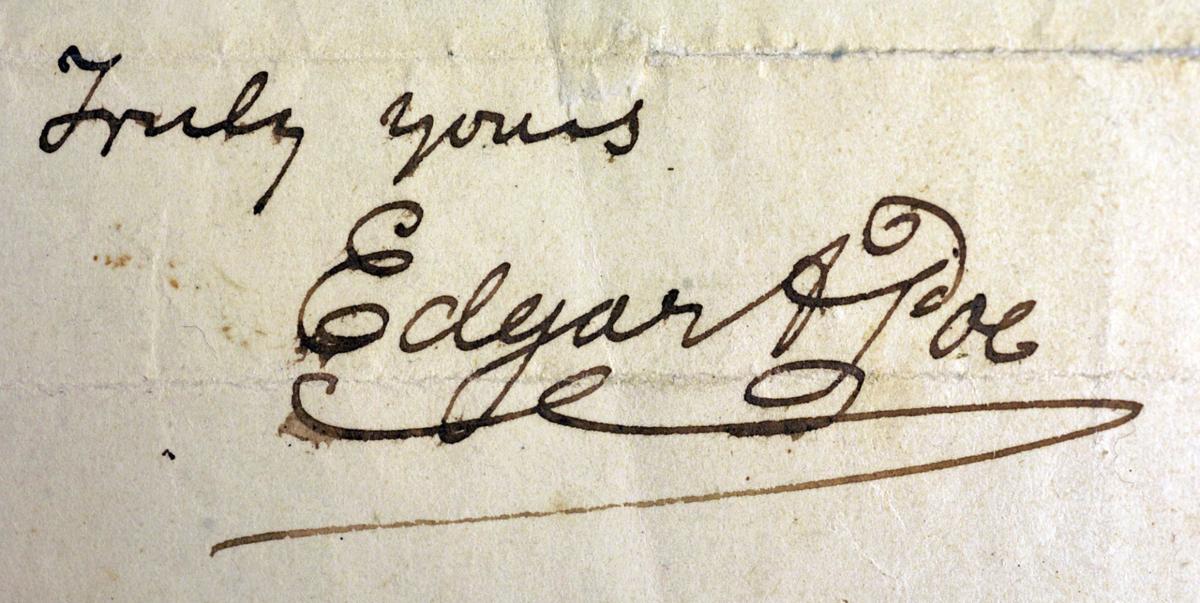 Truly yours
Edgar A Poe